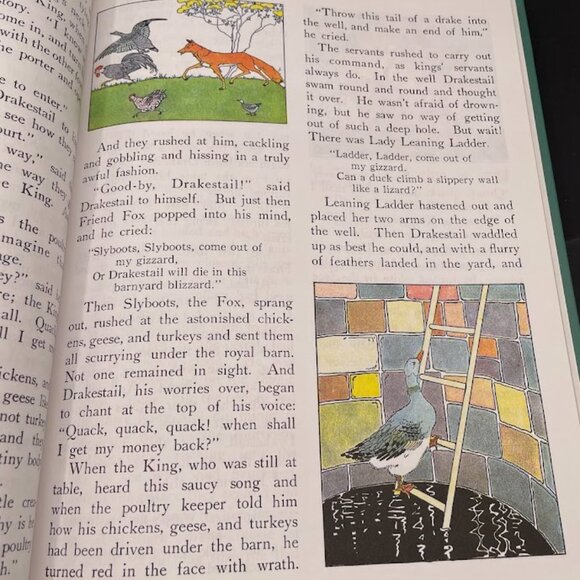 story. "I
come in, and turn
with the other f
the porter and
to enter."
Drakestail to
see how they
ourt."
way," said
way they
the King.
the poul
imagine the
age.
ey?" said
ere; the King
all. Quac
ll I get my
hickens, and
geese like
not turkeys
and they
tiny body
tle crea
hy is he
poultry
h."
And they rushed at him, cackling
and gobbling and hissing in a truly
awful fashion.
"Good-by, Drakestail!" said
Drakestail to himself. But just then
Friend Fox popped into his mind,
and he cried:
"Slyboots, Slyboots, come out of
my gizzard,
Or Drakestail will die in this
barnyard blizzard."
Then Slyboots, the Fox, sprang
out, rushed at the astonished chick-
ens, geese, and turkeys and sent them
all scurrying under the royal barn.
Not one remained in sight. And
Drakestail, his worries over, began
to chant at the top of his voice:
"Quack, quack, quack! when shall
I get my money back?"
When the King, who was still at
table, heard this saucy song and
when the poultry keeper told him
how his chickens, geese, and turkeys
had been driven under the barn, he
turned red in the face with wrath.
"Throw this tail of a drake into
the well, and make an end of him,"
he cried.
The servants rushed to carry out
his command, as kings' servants
always do. In the well Drakestail
swam round and round and thought
it over. He wasn't afraid of drown-
ing, but he saw no way of getting
out of such a deep hole. But wait!
There was Lady Leaning Ladder.
"Ladder, Ladder, come out of
my gizzard.
Can a duck climb a slippery wall
like a lizard?"
Leaning Ladder hastened out and
placed her two arms on the edge of
the well. Then Drakestail waddled
up as best he could, and with a flurry
of feathers landed in the yard, and